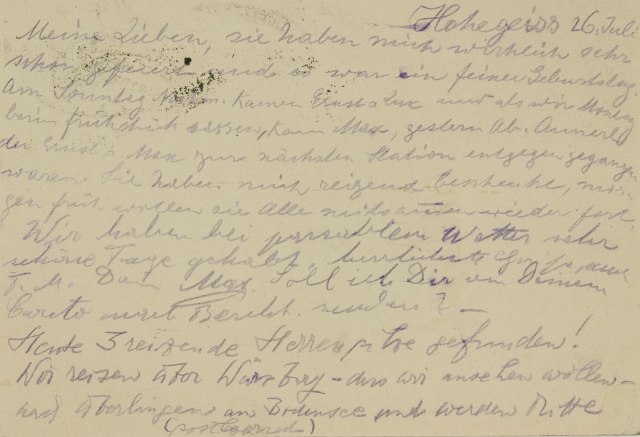 Hohegeiss 26. Juli
Meine Lieben, sie haben mich wirklich sehr
schön gefeiert und es war ein feiner Geburtstag.
Am Sonntag kamen Ernst u. und als wir Montag
beim Frühstück sassen, kam Max, gestern Ab. Annerl,
der Ernst u. Max zur nächsten Station entgegen gegangen
waren. Sie haben mich reizend beschenkt, mor-
gen früh wollen sie Alle mitsammen wieder fort.
Wir haben bei passablem Wetter sehr
schöne Tage gehabt, herrlichste
T. M. Dein Max. Soll ich Dir von Deinem
Conto Bericht senden? –
Heute 3 reizende Herrenpilze gefunden!
Wir reisen über Würzburg – das wir ansehen wollen –
nach Überlingen am Bodensee und werden Mitte
(postlagernd)